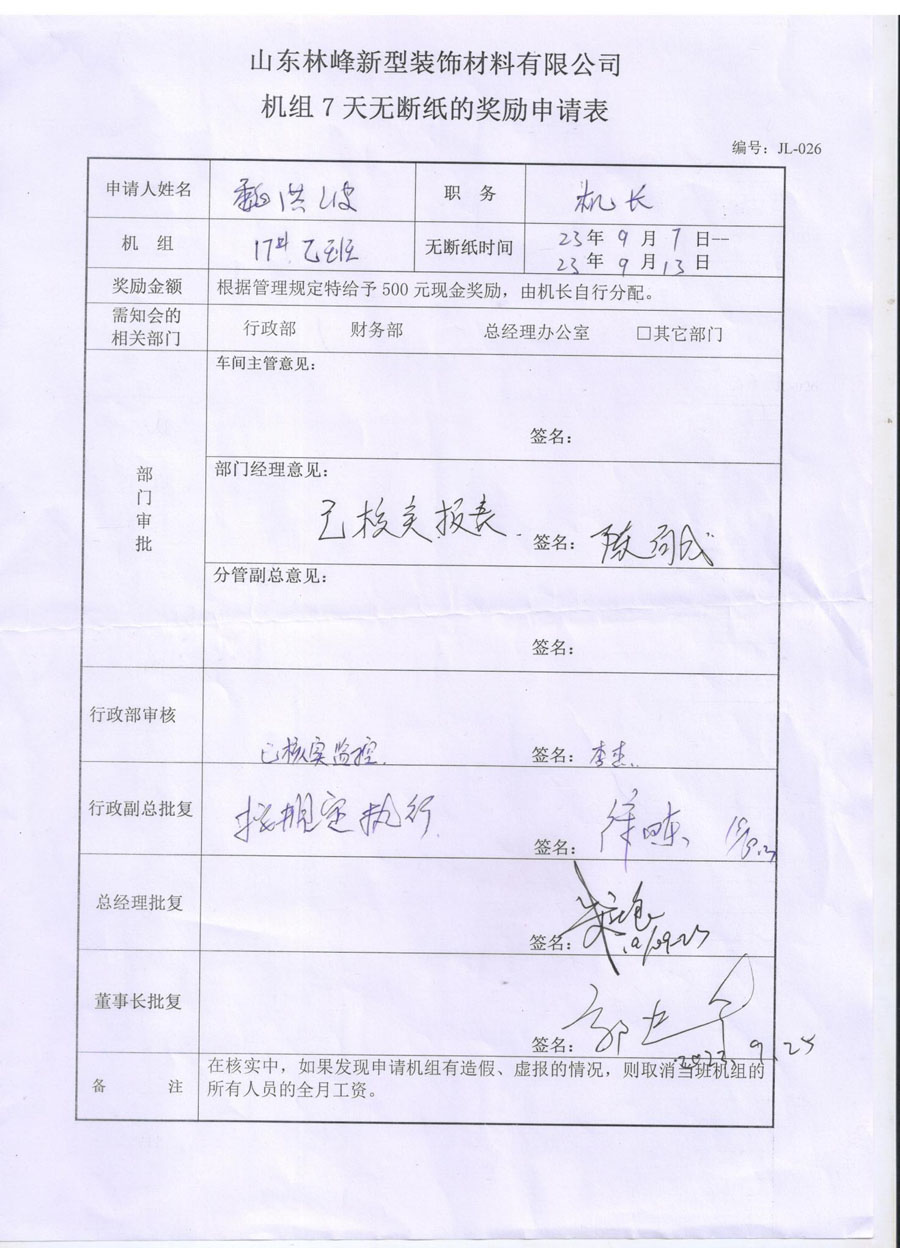 山东林峰新型装饰材料有限公司
机组7天无断纸的奖励申请表
编号：JL-026
申请人姓名 魏洪波 职 务 机长
机 组 17# 乙班 无断纸时间 23年9月7日--
23年9月13日
奖励金额 根据管理规定特给予500元现金奖励，由机长自行分配。
需知会的
相关部门 行政部 财务部 总经理办公室 □其它部门
部门审批
车间主管意见：
签名：
部门经理意见：
已核实报表.
签名：
分管副总意见：
签名：
行政部审核
已核实监控. 签名：李杰.
行政副总批复 按规定执行
签名：
总经理批复
签名：
董事长批复
签名：
2023.9.25
备 注 在核实中，如果发现申请机组有造假、虚报的情况，则取消当班机组的
所有人员的全月工资。